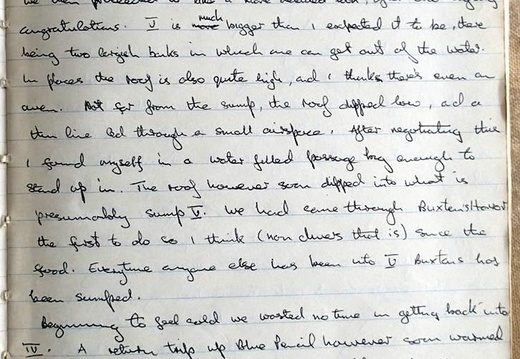 congratulations. V is much bigger than I expected it to be, there
being two largish banks in which one can get out of the water.
In places the roof is also quite high, and I think there's even an
aven. Not far from the sump, the roof dipped low, and a
thin line led through a small airspace. After negotiating this
I found myself in a water filled passage long enough to
stand up in. The roof however soon dipped into what is
presumably sump V. We had come through Buxton's Horror
the first to do so I think (non divers that is) since the
flood. Everytime anyone else has been into V Buxtons has
been sumped.
Beginning to feel cold we wasted no time in getting back into
IV. A return trip up Blue Pencil however soon warmed